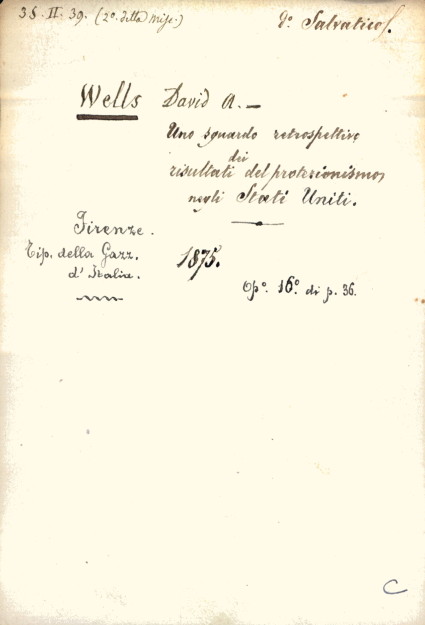 35. II. 39. (2º. della Misc.)
dº. Salvatico.
Wells David A. —
Uno sguardo retrospettivo
dei
risultati del protezionismo
negli Stati Uniti.
Firenze.
Tip. della Gazz.
d'Italia.
1875.
Opº. 16º. di p. 36.
C